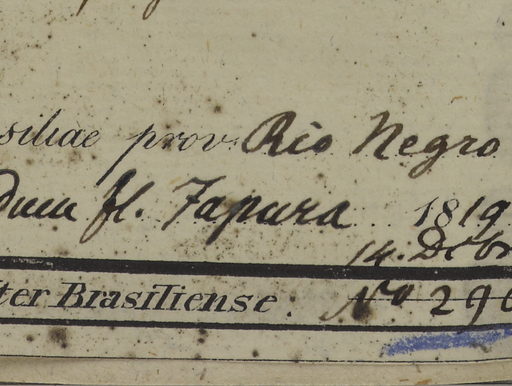 siliae prov. Rio Negro
fl. Japura 1819
14. Debr
ter Brasiliense. No 296